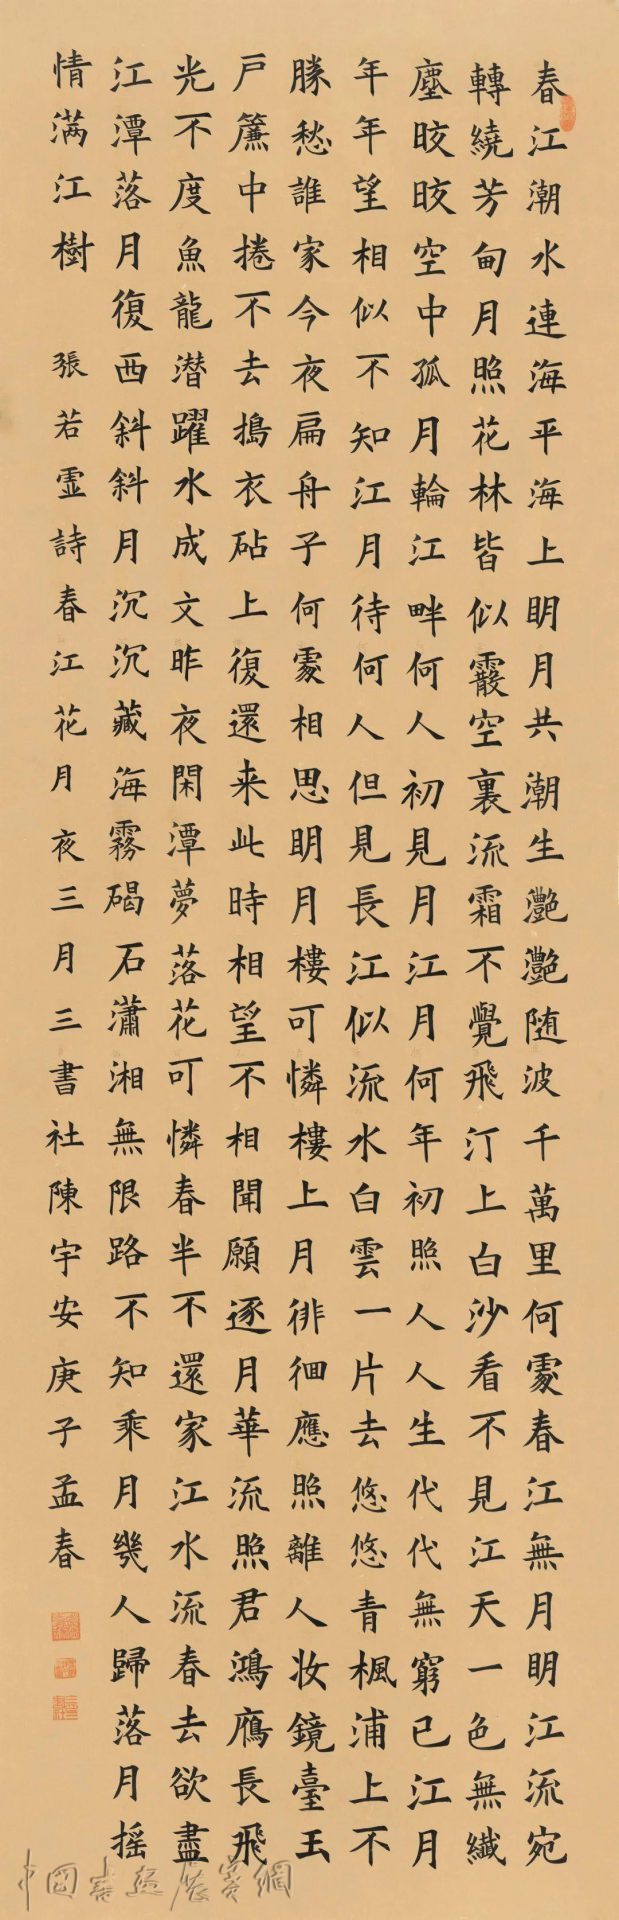 春江潮水連海平海上明月共潮生灔灔随波千萬里何處春江無月明江流宛
轉繞芳甸月照花林皆似霰空裏流霜不覺飛汀上白沙看不見江天一色無纖
塵晈晈空中孤月輪江畔何人初見月江月何年初照人人生代代無窮已江月
年年望相似不知江月待何人但見長江似流水白雲一片去悠悠青楓浦上不
勝愁誰家今夜扁舟子何處相思明月樓可憐樓上月徘徊應照離人妝鏡臺玉
戶簾中捲不去搗衣砧上復還来此時相望不相聞願逐月華流照君鴻鴈長飛
光不度魚龍潜躍水成文昨夜閑潭夢落花可憐春半不還家江水流春去欲盡
江潭落月復西斜斜月沉沉藏海霧碣石瀟湘無限路不知乘月幾人歸落月摇
情满江樹 張若虛詩春江花月夜三月三書社陳宇安庚子孟春
中國書畫展賽網